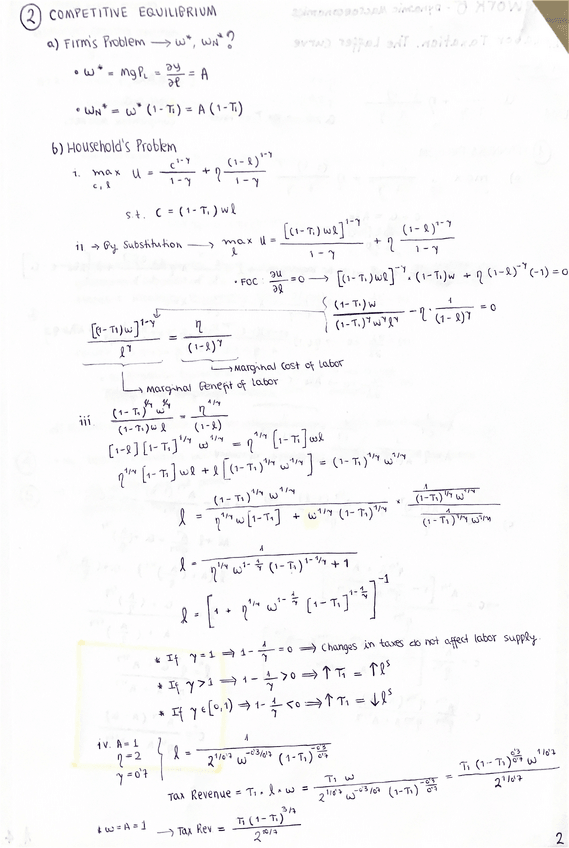 2 COMPETITIVE EQUILIBRIUM
a) Firm's Problem → w*, wN*?
• w* = MgPL = ∂y/∂l = A
• wN* = w* (1-T1) = A (1-T1)
b) Household's Problem
i. max c,l U = c^(1-γ)/(1-γ) + η (1-l)^(1-γ)/(1-γ)
s.t. C = (1-T1) wl
ii → By Substitution → max l U = [(1-T1) wl]^(1-γ)/(1-γ) + η (1-l)^(1-γ)/(1-γ)
• FOC: ∂u/∂l = 0 → [(1-T1) wl]^(-γ) · (1-T1) w + η (1-l)^(-γ) (-1) = 0
(1-T1) w / (1-T1)^γ w^γ l^γ - η · 1/(1-l)^γ = 0
[(1-T1) w]^(1-γ) / l^γ = η / (1-l)^γ
→ Marginal Cost of labor
→ Marginal Benefit of labor
iii (1-T1)^(1/γ) w^(1/γ) / (1-T1) wl = η^(1/γ) / (1-l)
[1-l] [1-T1]^(1/γ) w^(1/γ) = η^(1/γ) [1-T1] wl
η^(1/γ) [1-T1] wl + l [(1-T1)^(1/γ) w^(1/γ)] = (1-T1)^(1/γ) w^(1/γ)
l = (1-T1)^(1/γ) w^(1/γ) / η^(1/γ) w [1-T1] + w^(1/γ) (1-T1)^(1/γ) × 1/(1-T1)^(1/γ) w^(1/γ) / 1/(1-T1)^(1/γ) w^(1/γ)
l = 1 / η^(1/γ) w^(1-1/γ) (1-T1)^(1-1/γ) + 1
l = [1 + η^(1/γ) w^(1-1/γ) [1-T1]^(1-1/γ)]^(-1)
* If γ = 1 ⇒ 1 - 1/γ = 0 ⇒ Changes in taxes do not affect labor supply.
* If γ > 1 ⇒ 1 - 1/γ > 0 ⇒ ↑ T1 = ↑ l^s
* If γ ∈ [0,1) ⇒ 1 - 1/γ < 0 ⇒ ↑ T1 = ↓ l^s
iv. A = 1
η = 2
γ = 0'7
l = 1 / 2^(1/0'7) w^(-0'3/0'7) (1-T1)^(-0'3/0'7)
Tax Revenue = T1 · l · w = T1 w / 2^(1/0'7) w^(-0'3/0'7) (1-T1)^(-0'3/0'7) = T1 (1-T1)^(0'3/0'7) w^(1/0'7) / 2^(1/0'7)
& w = A = 1 → Tax Rev = T1 (1-T1)^(3/7) / 2^(10/7)
2